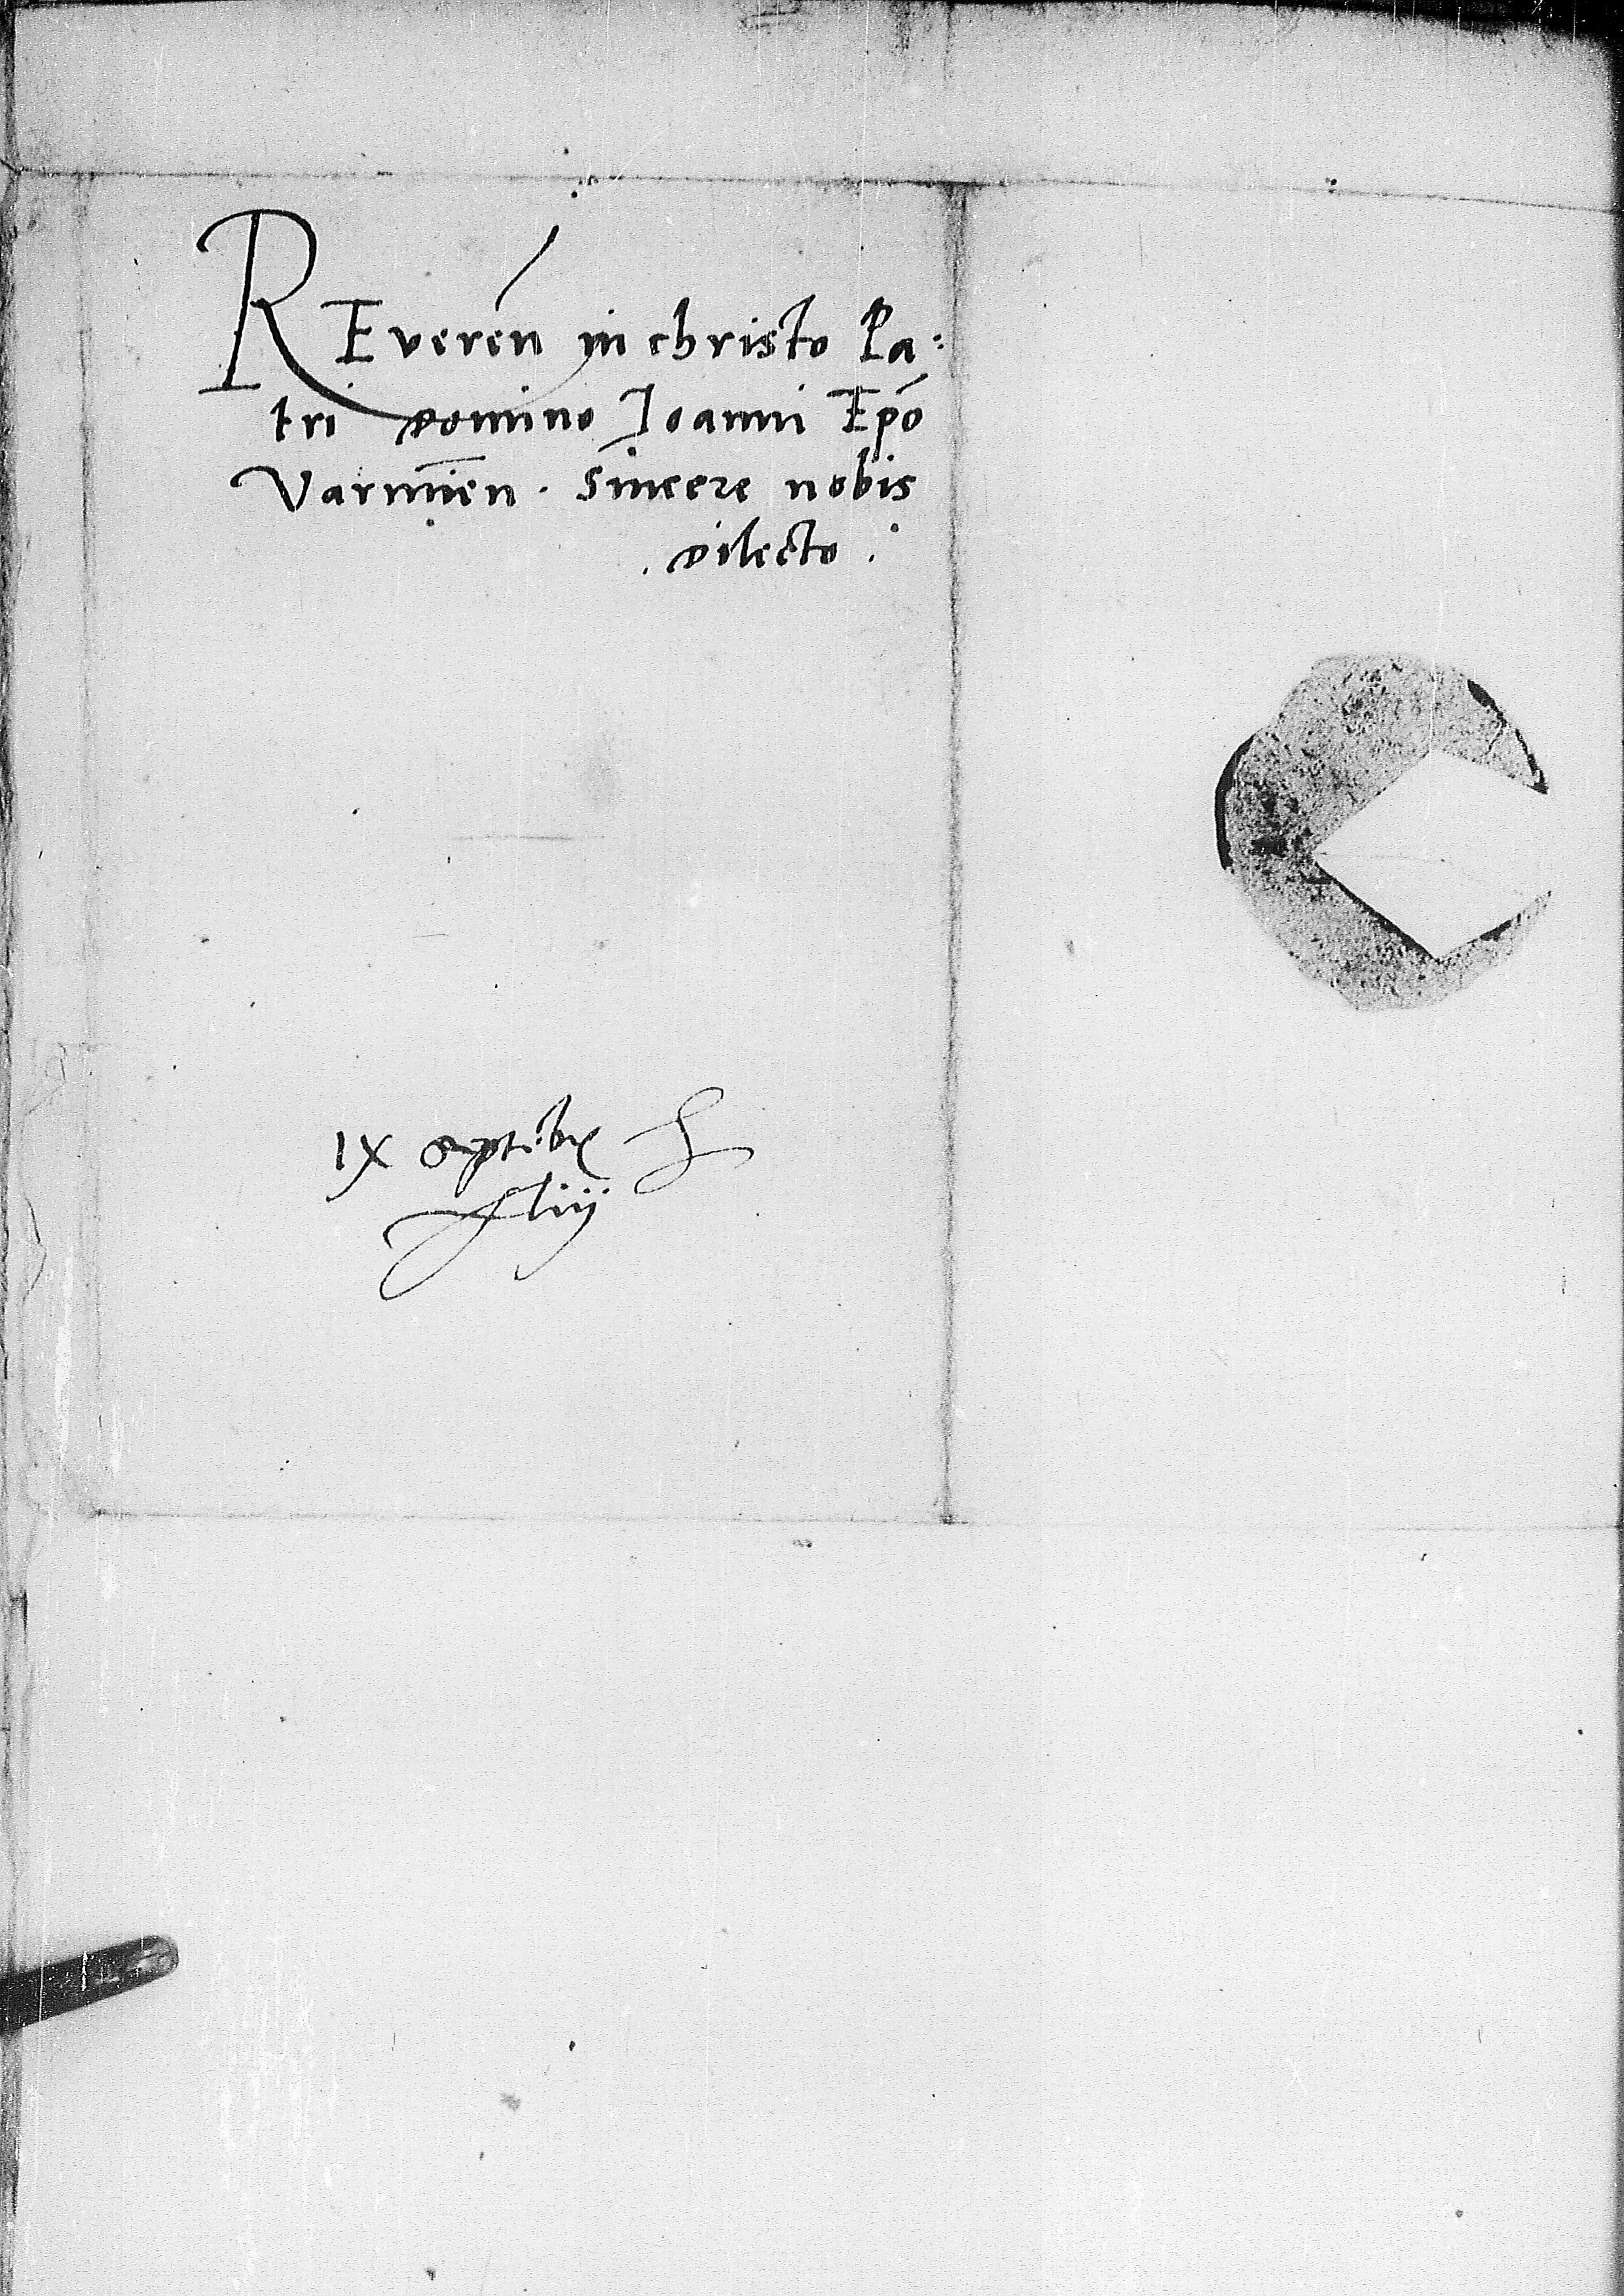 REveren̄ in christo Pa:
tri domino Ioanni Ep̄o
Varmien̄. Sincere nobis
. dilecto .
IX Septēbr